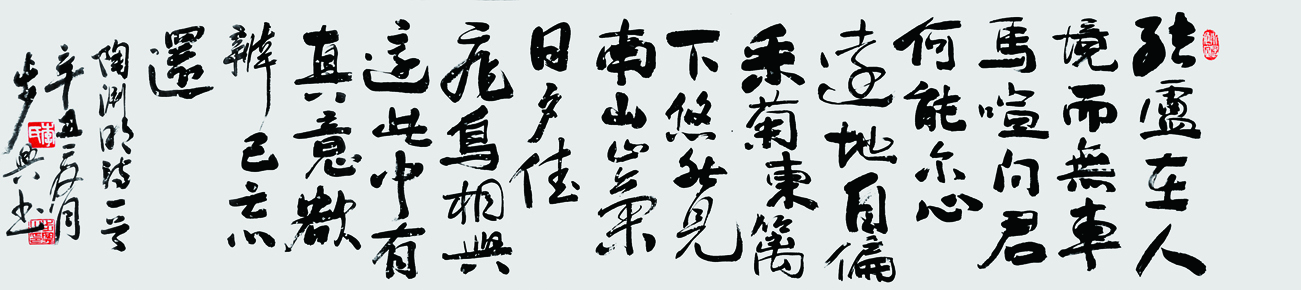 結盧在人
境而無車
馬喧问君
何能尔心
遠地自偏
采菊東篱
下悠然見
南山山氣
日夕佳
飛鳥相與
還此中有
真意欲
辨已忘
還
陶渊明詩一首
辛丑 月
步興书
李氏